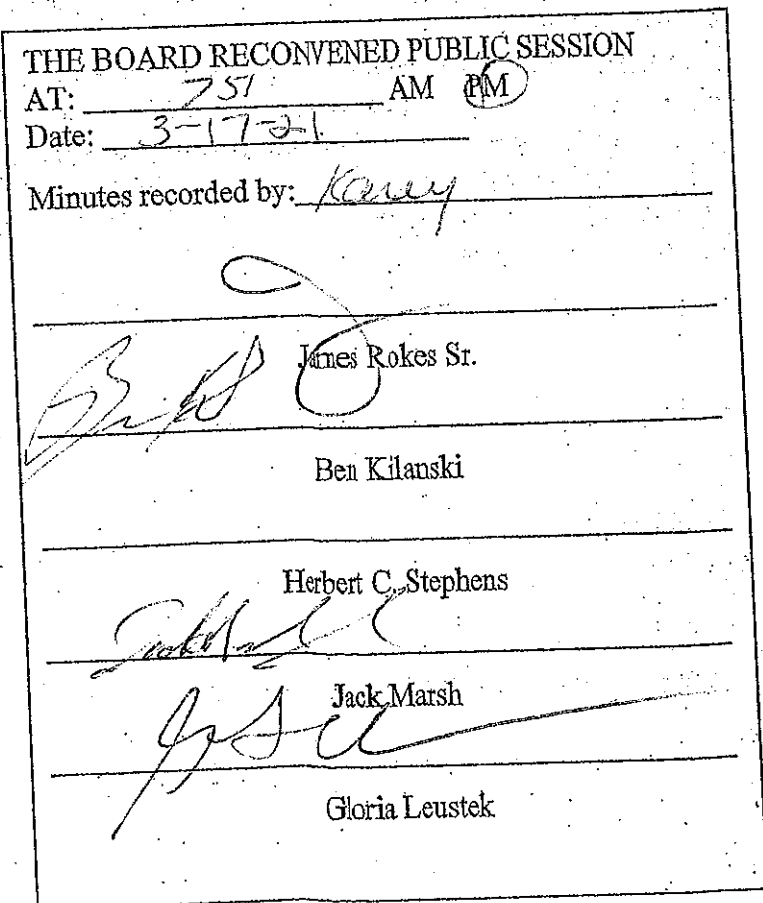 THE BOARD RECONVENED PUBLIC SESSION
AT: 751 AM PM
Date: 3-17-21
Minutes recorded by:
James Rokes Sr.
Ben Kilanski
Herbert C. Stephens
Jack Marsh
Gloria Leustek